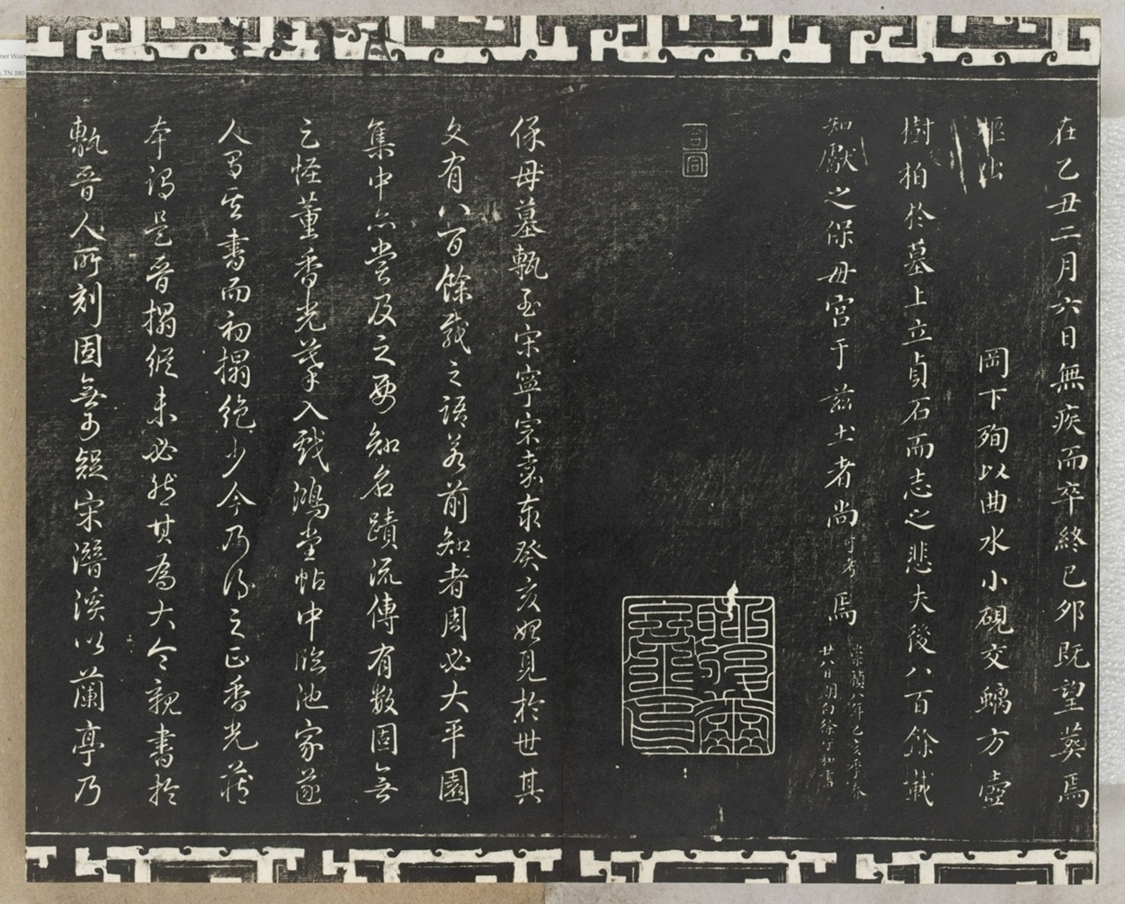 在乙丑二月六日無疾而卒終已夘既望葬焉
岡下殉以曲水小硯交螭方壺
樹柏於墓上立貞石而志之悲夫後八百餘載
知獻之保母宮于茲土者尚可考焉
合同
保母墓甎至宋寧宗嘉泰癸亥始見於世其
文有八百餘載之語若前知者周必大平園
集中亦嘗及之要知名蹟流傳有數固無
乏怪董香光摹入戲鴻堂帖中臨池家遂
人習其書而初搨絶少今乃得之正香光藏
本謂是晉搨縱未必然其為大令親書於
甎晉人所刻固無可疑宋潛溪以蘭亭乃